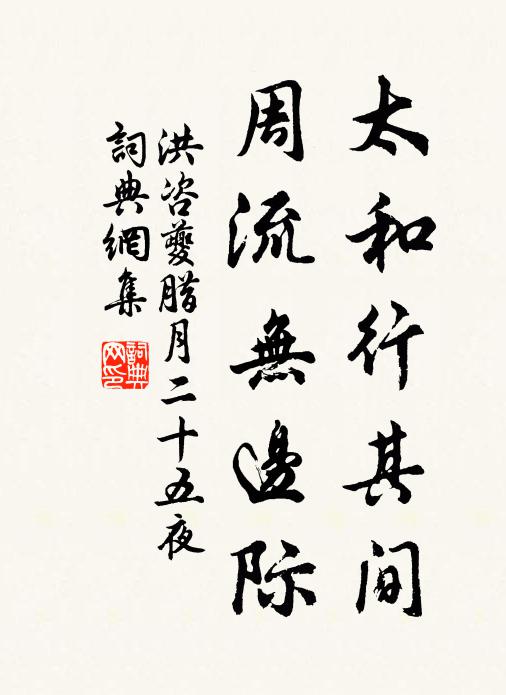 太和行其間
周流無邊际
洪咨夔腊月二十五夜
詞典網集
詞典
网印